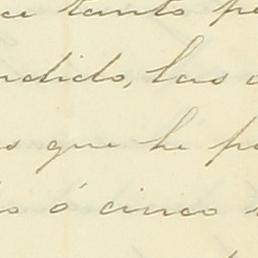 ce tanto pe
ndido, las
s que he p
s ó cinco